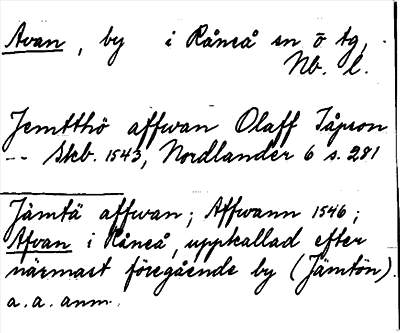 Avan, by i Råneå sn ö tg,
Nb. l.
Jemtthö affwan Olaff Jåpson
-- Skb. 1543, Nordlander 6 s. 281
Jämtä affwan; Affwann 1546;
Afvan i Råneå, uppkallad efter
närmast föregående by (Jämtön).
a. a. anm.